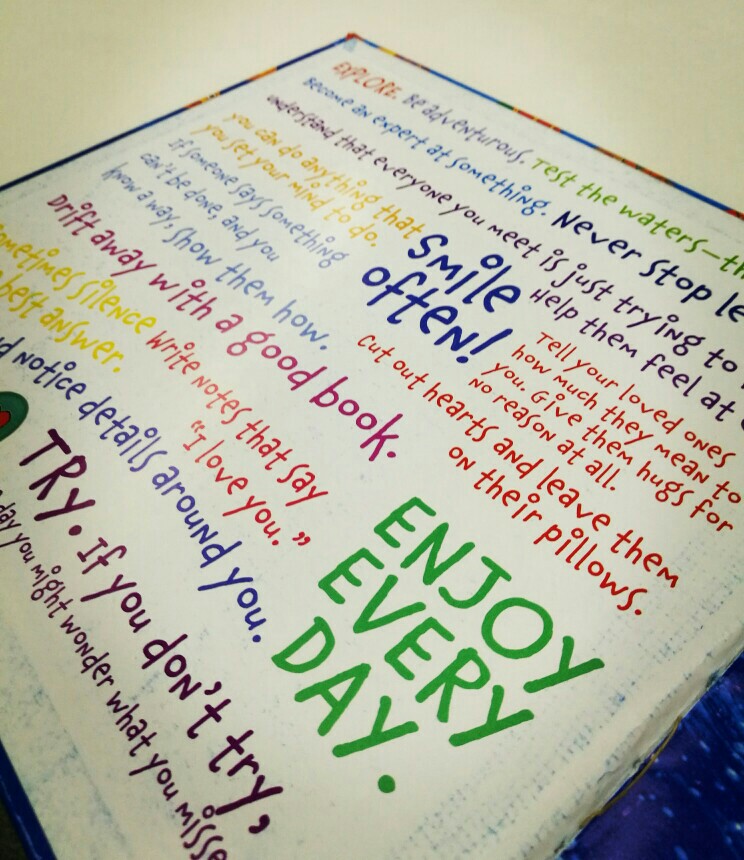 EXPLORE. Be adventurous. Test the waters—
Become an expert at something. Never stop
understand that everyone you meet is just trying to
Help them feel at
you can do anything that
you set your mind to do.
If someone says something
can't be done, and you
know a way, show them how.
Smile
often!
Tell your loved ones
how much they mean to
you. Give them hugs for
no reason at all.
Drift away with a good book.
Cut out hearts and leave them
on their pillows.
Sometimes silence
best answer.
Write notes that say
"I love you."
notice details around you.
ENJOY
EVERY
DAY.
TRY. If you don't try,
day you might wonder what you